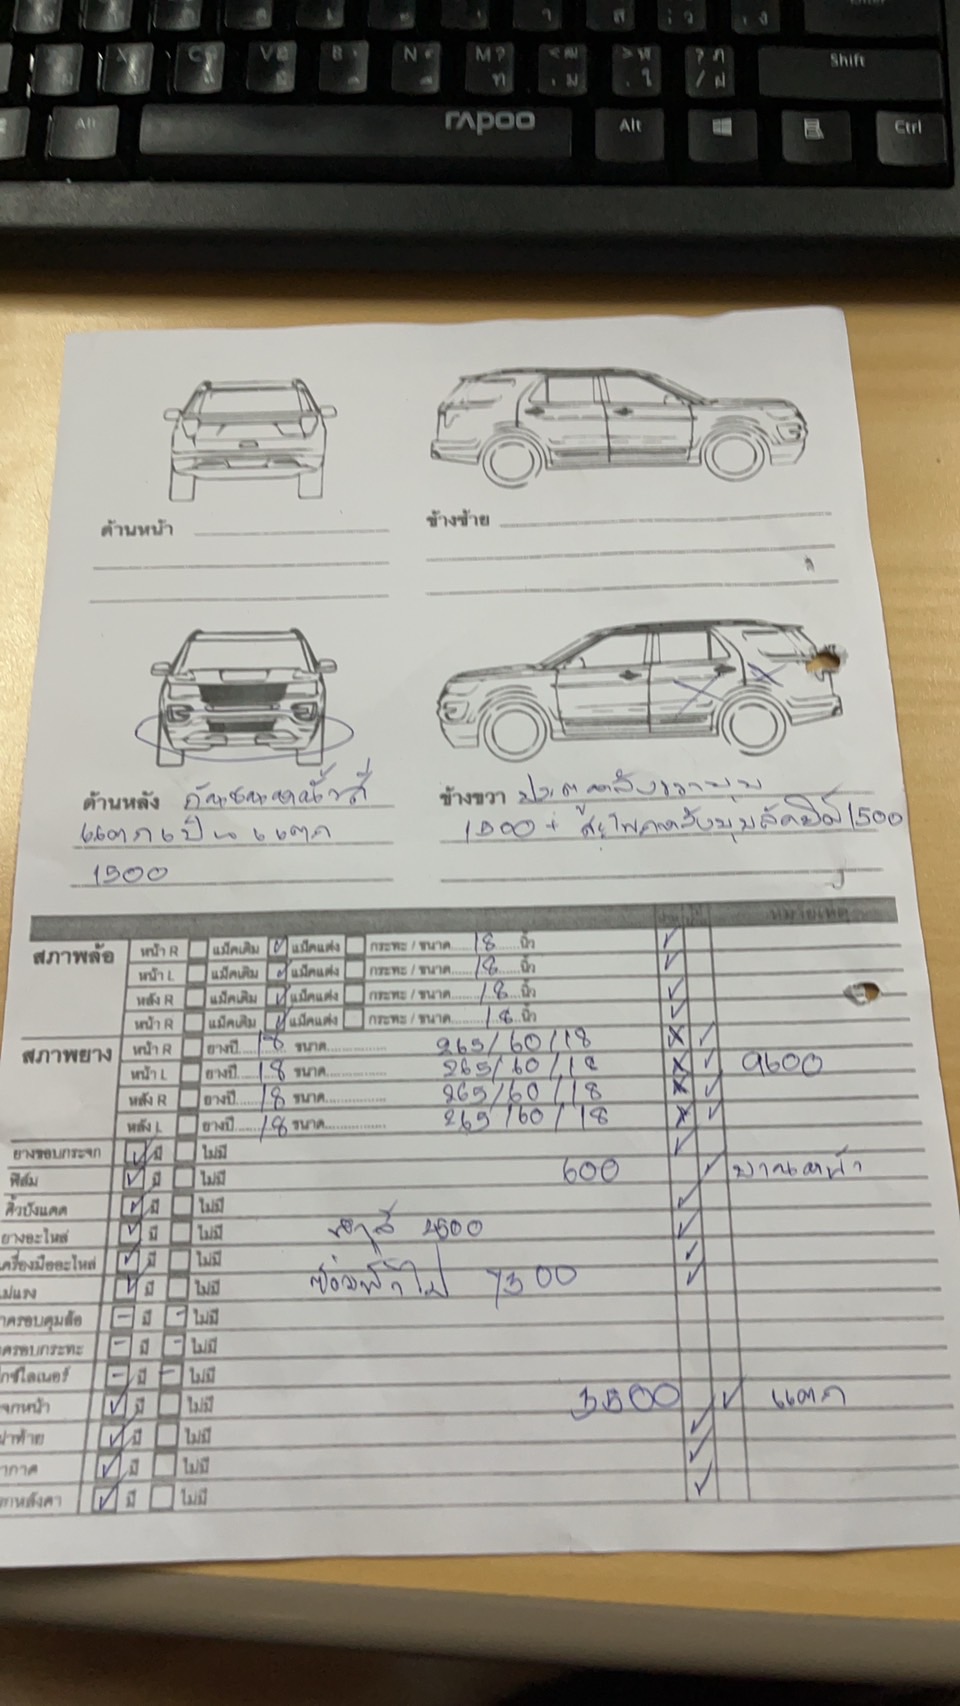 Shift
Alt rapoo Alt Ctrl
ด้านหน้า ข้างซ้าย
ด้านหลัง กันชนหน้าสี
แตกเป็น แตก
1500
ข้างขวา ประตูหลังขวาบุบ
1500 + 1500
หมายเหตุ
สภาพล้อ หน้า R แม็คเดิม แม็คแต่ง กระทะ / ขนาด 18 นิ้ว
หน้า L แม็คเดิม แม็คแต่ง กระทะ / ขนาด 18 นิ้ว
หลัง R แม็คเดิม แม็คแต่ง กระทะ / ขนาด 18 นิ้ว
หน้า R แม็คเดิม แม็คแต่ง กระทะ / ขนาด 18 นิ้ว
สภาพยาง หน้า R ยางปี 18 ขนาด 265/60/18
หน้า L ยางปี 18 ขนาด 265/60/18 9600
หลัง R ยางปี 18 ขนาด 265/60/18
หลัง L ยางปี 18 ขนาด 265/60/18
ยางขอบกระจก มี ไม่มี
ฟิล์ม มี ไม่มี 600 บานหน้า
คิ้วบังแดด มี ไม่มี
ยางอะไหล่ มี ไม่มี
ครื่องมืออะไหล่ มี ไม่มี
ม่แรง มี ไม่มี ซ่อมทั่วไป
าครอบดุมล้อ มี ไม่มี
าครอบกระทะ มี ไม่มี
กซ์ไลเนอร์ มี ไม่มี
จกหน้า มี ไม่มี แตก
ฝาท้าย มี ไม่มี
ากาศ มี ไม่มี
ากหลังคา มี ไม่มี